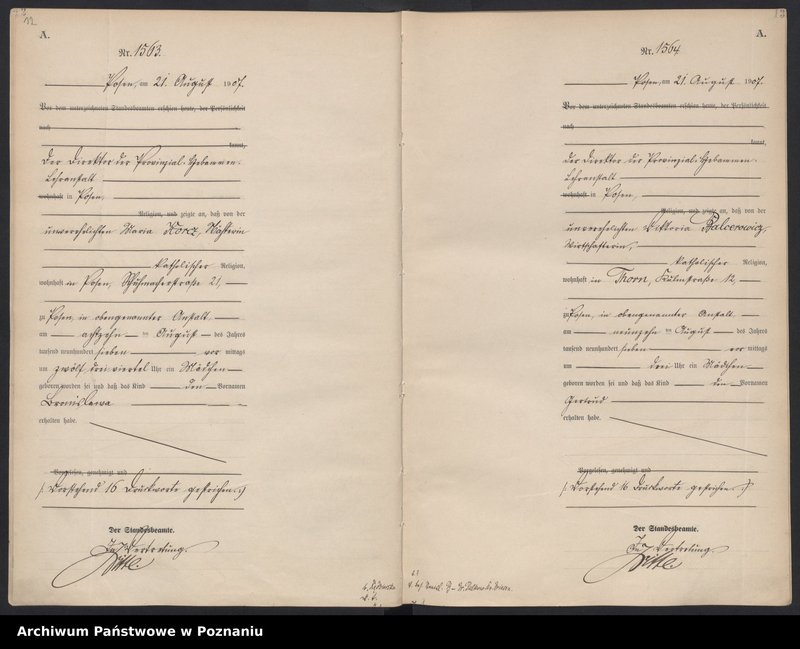 A.
Nr. 1563.
Posen, am 21. August 1907.
Vor dem unterzeichneten Standesbeamten erschien heute, der Persönlichkeit
nach
kannt,
Der Direktor der Provinzial-Hebammen-
Lehranstalt
wohnhaft in Posen,
Religion, und zeigte an, daß von der
unverehelichten Maria Korcz, Näherin
katholischer Religion,
wohnhaft in Posen, Schuhmacherstraße 21,
zu Posen, in obengenannter Anstalt,
am achtzehn ten August des Jahres
tausend neunhundert sieben vor mittags
um zwölf drei viertel Uhr ein Mädchen
geboren worden sei und daß das Kind den Vornamen
Bronislawa
erhalten habe.
Vorgelesen, genehmigt und
/: Vorstehend 16 Druckworte gestrichen. :/
Der Standesbeamte.
In Vertretung.
A.
Nr. 1564
Posen, am 21. August 1907.
Vor dem unterzeichneten Standesbeamten erschien heute, der Persönlichkeit
nach
kannt,
der Direktor der Provinzial-Hebammen-
Lehranstalt
wohnhaft in Posen,
Religion, und zeigte an, daß von der
unverehelichten Viktoria Balcerowicz,
Wirtschafterin,
katholischer Religion,
wohnhaft in Thorn, Culmstraße 12,
zu Posen, in obengenannter Anstalt,
am neunzehn ten August des Jahres
tausend neunhundert sieben vor mittags
um drei Uhr ein Mädchen
geboren worden sei und daß das Kind den Vornamen
Gertrud
erhalten habe.
Vorgelesen, genehmigt und
/: Vorstehend 16 Druckworte gestrichen. :/
Der Standesbeamte.
In Vertretung.
Archiwum Państwowe w Poznaniu